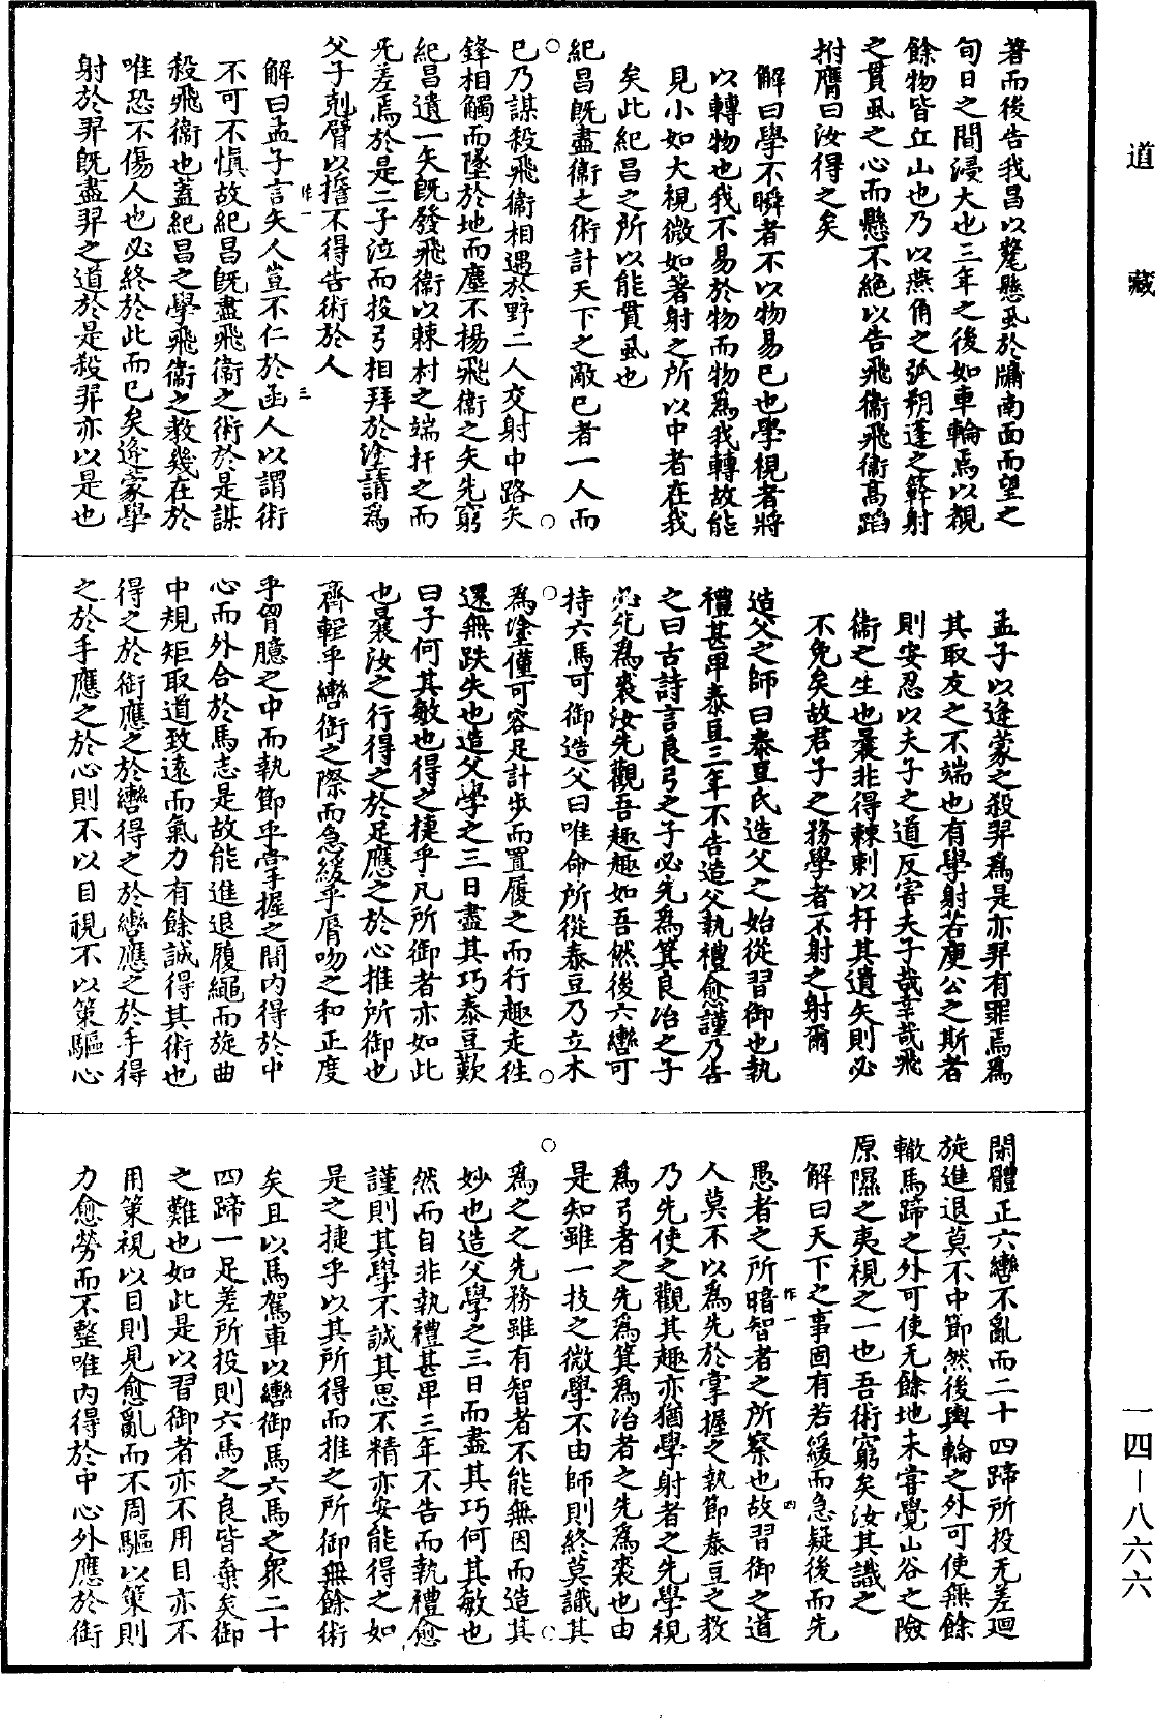 著而後告我昌以氂懸虱於牖南面而望之
旬日之間浸大也三年之後如車輪焉以覩
餘物皆丘山也乃以燕角之弧朔蓬之簳射
之貫虱之心而懸不絕以告飛衞飛衞高蹈
拊膺曰汝得之矣
解曰學不瞬者不以物易己也學視者將
以轉物也我不易於物而物為我轉故能
見小如大視微如著射之所以中者在我
矣此紀昌之所以能貫虱也
紀昌既盡衞之術計天下之敵己者一人而
已乃謀殺飛衞相遇於野二人交射中路矢
鋒相觸而墜於地而塵不揚飛衞之矢先窮
紀昌遺一矢既發飛衞以棘村之端扞之而
无差焉於是二子泣而投弓相拜於塗請為
父子剋臂以誓不得告術於人
解曰孟子言矢人豈不仁於函人以謂術
不可不慎故紀昌既盡飛衞之術於是謀
殺飛衞也蓋紀昌之學飛衞之教幾在於
唯恐不傷人也必終於此而已矣逄蒙學
射於羿既盡羿之道於是殺羿亦以是也
孟子以逄蒙之殺羿為是亦羿有罪焉為
其取友之不端也有學射若庾公之斯者
則安忍以夫子之道反害夫子哉幸哉飛
衞之生也曩非得棘刺以扞其遺矢則必
不免矣故君子之務學者不射之射爾
造父之師曰泰豆氏造父之始從習御也執
禮甚卑泰豆三年不告造父執禮愈謹乃告
之曰古詩言良弓之子必先為箕良冶之子
必先為裘汝先觀吾趣趣如吾然後六轡可
持六馬可御造父曰唯命所從泰豆乃立木
為塗僅可容足計步而置履之而行趣走往
還無跌失也造父學之三日盡其巧泰豆歎
曰子何其敏也得之捷乎凡所御者亦如此
也曩汝之行得之於足應之於心推所御也
齊輯乎轡銜之際而急緩乎脣吻之和正度
乎胷臆之中而執節乎掌握之間內得於中
心而外合於馬志是故能進退履繩而旋曲
中規矩取道致遠而氣力有餘誠得其術也
得之於銜應之於轡得之於轡應之於手得
之於手應之於心則不以目視不以策驅心
閑體正六轡不亂而二十四蹄所投无差迴
旋進退莫不中節然後輿輪之外可使無餘
轍馬蹄之外可使无餘地未嘗覺山谷之險
原隰之夷視之一也吾術窮矣汝其識之
解曰天下之事固有若緩而急疑後而先
愚者之所暗智者之所察也故習御之道
人莫不以為先於掌握之執節泰豆之教
乃先使之觀其趣亦猶學射者之先學視
為弓者之先為箕為冶者之先為裘也由
是知雖一技之微學不由師則終莫識其
為之之先務雖有智者不能無因而造其
妙也造父學之三日而盡其巧何其敏也
然而自非執禮甚卑三年不告而執禮愈
謹則其學不誠其思不精亦安能得之如
是之捷乎以其所得而推之所御無餘術
矣且以馬駕車以轡御馬六馬之眾二十
四蹄一足差所投則六馬之良皆棄矣御
之難也如此是以習御者亦不用目亦不
用策視以目則見愈亂而不周驅以策則
力愈勞而不整唯內得於中心外應於銜
道
藏
一四—八六六